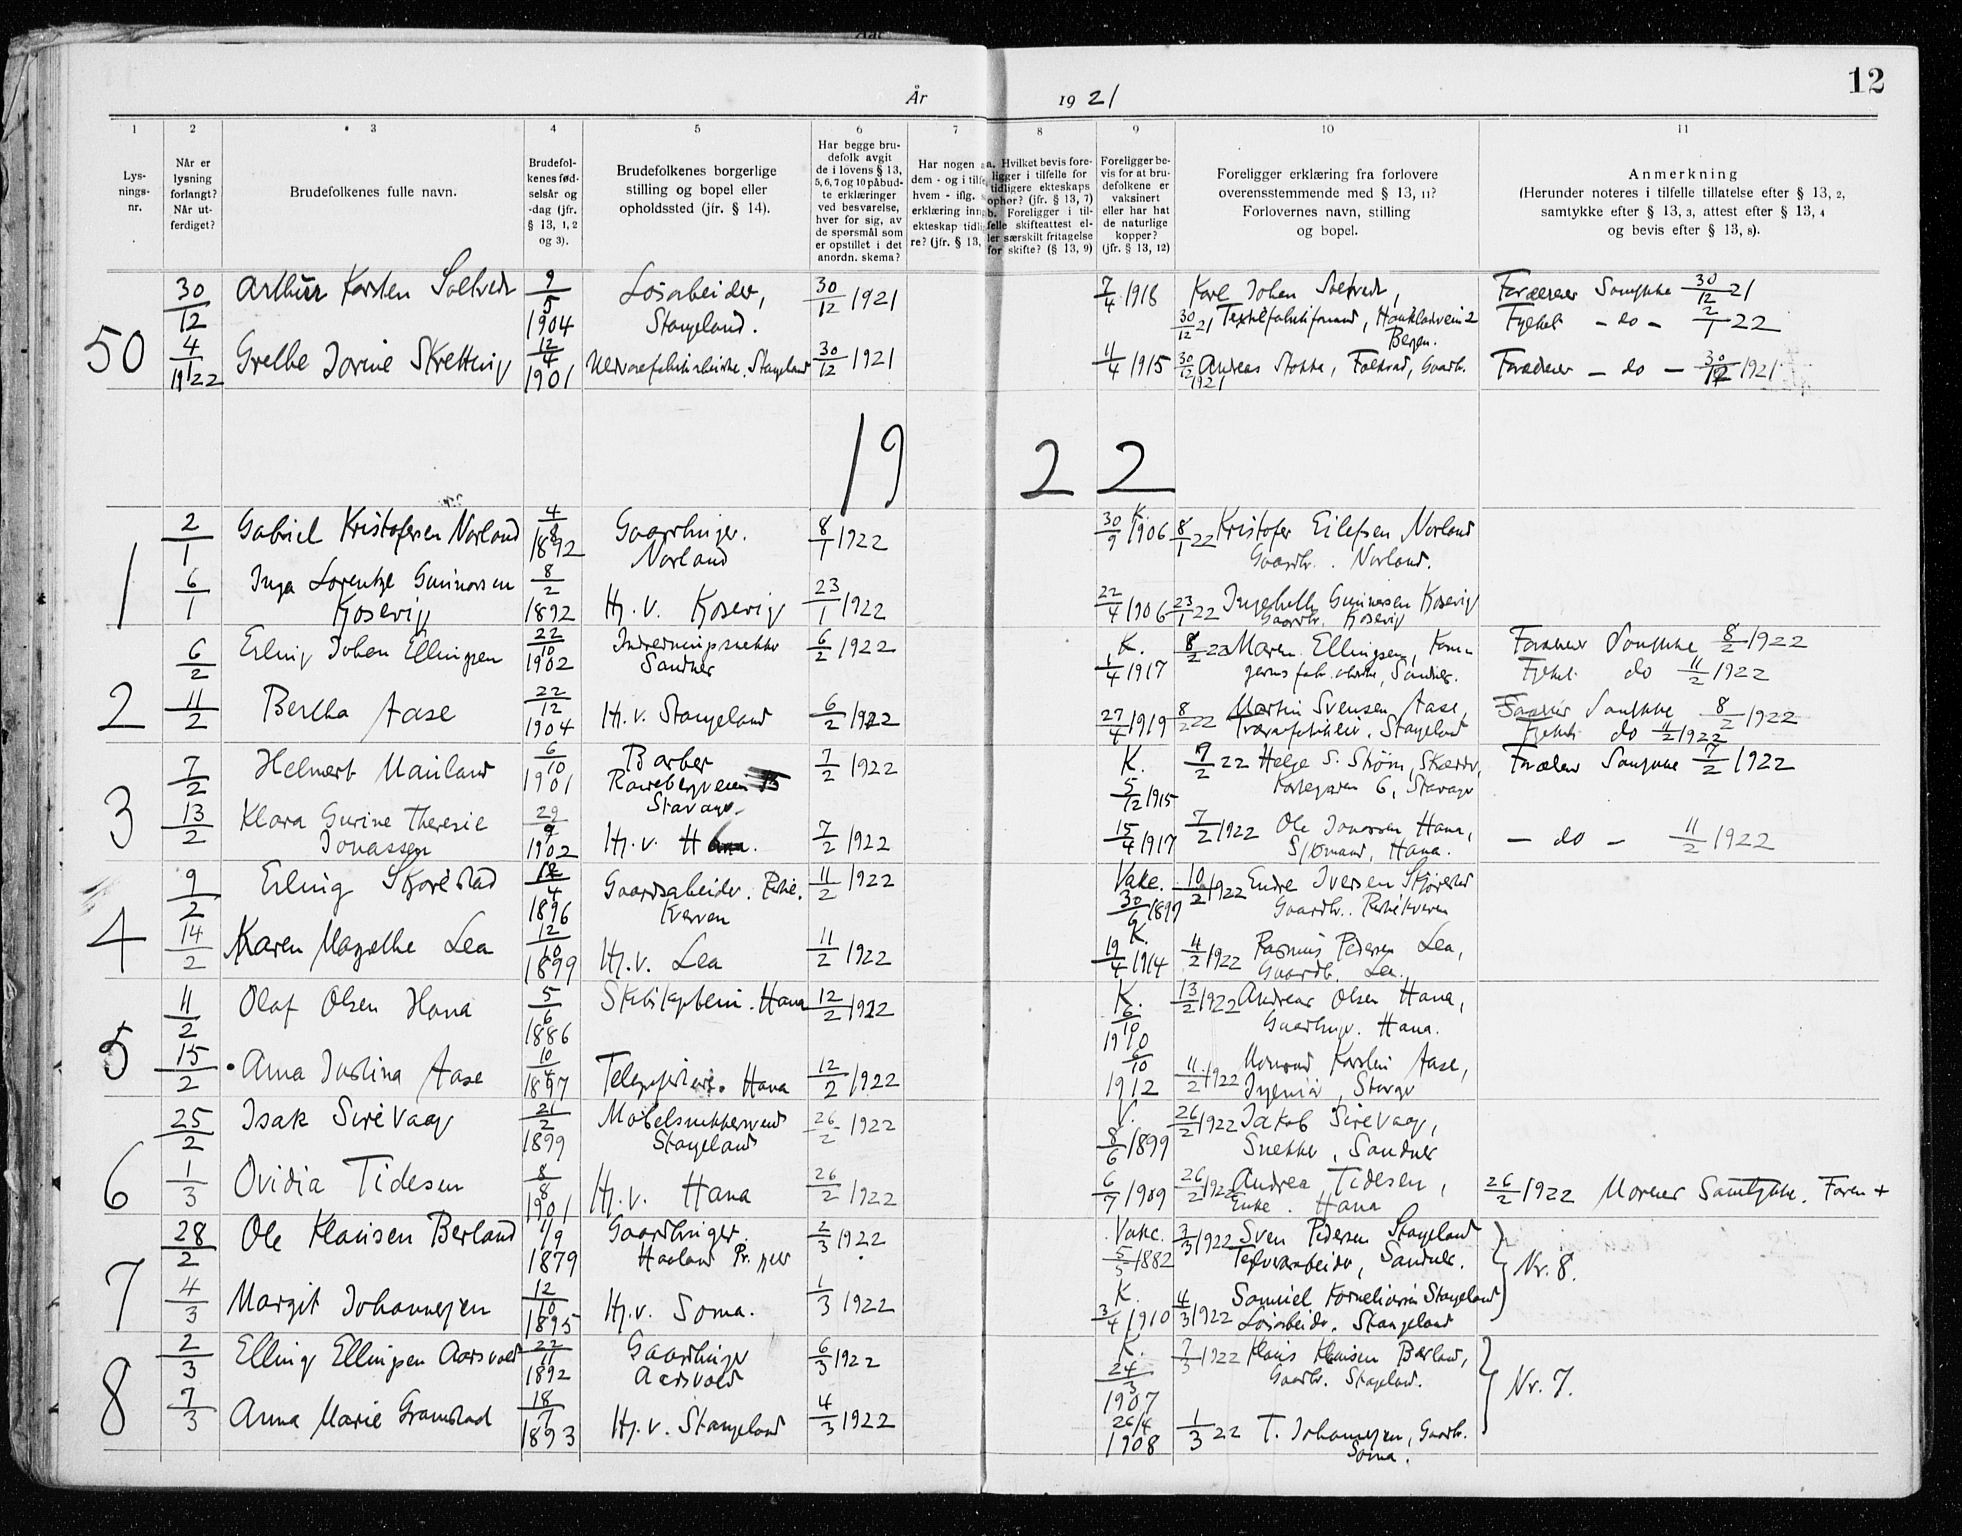 12
År 1921
1 2 3 4 5 6 7 8 9 10 11
Lysningsnr.
Når er lysning forlangt? Når utferdiget?
Brudefolkenes fulle navn.
Brudefolkenes fødselsår og -dag (jfr. § 13, 1, 2 og 3).
Brudefolkenes borgerlige stilling og bopel eller opholdssted (jfr. § 14).
Har begge brudefolk avgit de i lovens § 13, 5, 6, 7 og 10 påbudte erklæringer ved besvarelse, hver for sig, av de spørsmål som er opstillet i det anordn. skema?
Har nogen a
dem - og i tilfe
hvem - iflg.
erklæring inng
ekteskap tidli
re? (jfr. § 13,
a. Hvilket bevis foreligger i tilfelle for tidligere ekteskaps ophør? (jfr. § 13, 7)
b. Foreligger i tilfelle skifteattest eller særskilt fritagelse for skifte? (§ 13, 9)
Foreligger bevis for at brudefolkene er vaksinert eller har hat de naturlige kopper? (jfr. § 13, 12)
Foreligger erklæring fra forlovere overensstemmende med § 13, 11? Forlovernes navn, stilling og bopel.
Anmerkning
(Herunder noteres i tilfelle tillatelse efter § 13, 2, samtykke efter § 13, 3, attest efter § 13, 4 og bevis efter § 13, 8).
50 30/12 Arthur Karsten Soltvedt 9/5 1904 Løsarbeider, Stangeland. 30/12 1921 7/4 1918 Karl Johan Soltvedt, 30/12 21 Bergen. Samtykke 30/12 21
Fylket - do - 2/1 22
4/1 1922 Grethe Jorine Skretting 12/4 1901 Stangeland 30/12 1921 11/4 1915 30/12 1921 Andreas Stokke, Gaardb. - do - 30/12 1921
1922
1 2/1 Gabriel Kristofersen Norland 4/8 1892 Gaardbruger. Norland 8/1 1922 K. 30/9 1906 8/1 22 Kristofer Eilefsen Norland Gaardb. Norland.
6/1 Inga Lorentze Gunnarsen Kosevig 8/2 1892 Hj.v. Kosevig 23/1 1922 22/4 1906 23/1 22 Gunnarsen Kosevig Gaardb. Kosevig
2 6/2 Erling Johan Ellingsen 22/10 1902 Indredningssnekker Sandnes 6/2 1922 K. 1/4 1917 8/2 22 Maren Ellingsen, Sandnes. Samtykke 8/2 1922
Fylket do 11/2 1922
11/2 Bertha Aase 22/12 1904 Hj.v. Stangeland 6/2 1922 27/4 1919 8/2 22 Martin Svensen Aase, Stangeland Samtykke 8/2 1922
Fylket do 11/2 1922
3 7/2 Helmert Mauland 6/10 1901 Barber Stavanger 7/2 1922 K. 5/12 1915 7/2 22 Helge S. Strøm, Skrædr, 6, Stavanger Samtykke 7/2 1922
13/2 Klara Gurine Theresie Jonassen 29/9 1902 Hj.v. Hana. 7/2 1922 15/4 1917 7/2 1922 Ole Jonassen Hana, Sjømand, Hana. - do - 11/2 1922
4 9/2 Erling Skjørestad 4 1896 Gaardsarbeider. 11/2 1922 Vakc. 30/6 1897 10/2 1922 Endre Iversen Skjørestad Gaardb.
14/2 Karen Magdthe Lea 12/10 1899 Hj.v. Lea 11/2 1922 K. 19/4 1914 11/2 1922 Rasmus Pedersen Lea, Gaardb. Lea.
5 11/2 Olaf Olsen Hana 5/6 1886 Hana 12/2 1922 K. 6/10 1910 13/2 1922 Andreas Olsen Hana, Gaardbruger. Hana.
15/2 Anna Justina Aase 10/4 1897 Hana 12/2 1922 6/10 1912 11/2 1922 Aase, Ingeniør, Stavgr
6 25/2 Isak Sirevaag 21/2 1899 Møbelsnekkersvend Stangeland 26/2 1922 V. 8/6 1899 26/2 1922 Jakob Sirevaag, Snekker, Sandnes
1/3 Ovidia Tidesen 8/8 1901 Hj.v. Hana 26/2 1922 6/9 1909 26/2 1922 Andrea Tidesen, Enke. Hana 26/2 1922 Morens Samtykke. Faren +
7 28/2 Ole Klausen Berland 1/9 1879 Gaardbruger. Haaland 2/3 1922 Vakc. 5/5 1882 3/3 1922 Sven Pedersen Stangeland Sandnes. Nr. 8.
4/3 Margit Johannesen 12/10 1895 Hj.v. Soma. 1/3 1922 K. 3/4 1910 4/3 1922 Samuel Korneliussen Stangeland Løsarbeider. Stangeland
8 2/3 Elling Ellingsen Aarsvold 22/11 1892 Gaardbruger Aarsvold 6/3 1922 K. 24/3 1907 7/3 1922 Klaus Klausen Berland, Gaardb. Stangeland. Nr. 7.
7/3 Anna Marie Gramstad 18/1 1893 Hj.v. Stangeland 4/3 1922 26/4 1908 1/3 22 T. Johannesen, Gaardb. Soma.